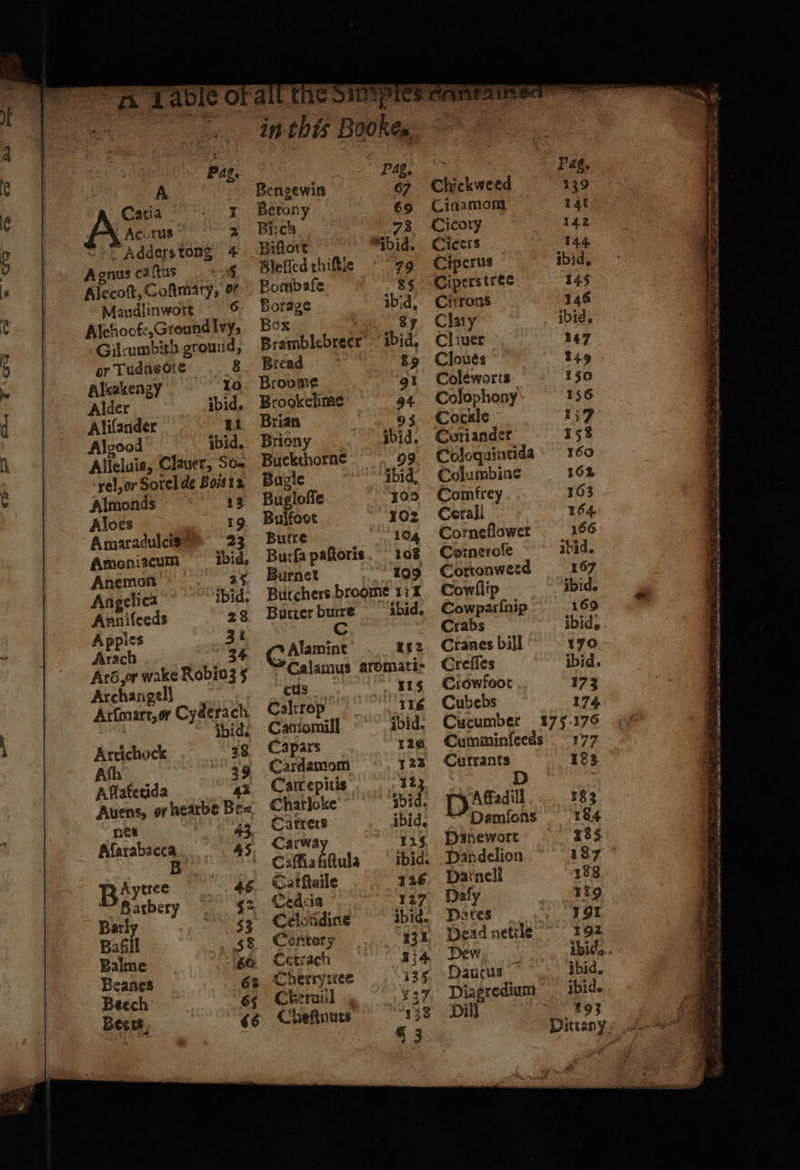 A Table of all the Simples contained
in this Booke.
Pag.
A
Acatia 1
Acorus 2
Adderstong 4
Agnus caſtus 5
Alecoſt, Coſtmary, or
Maudlinwort 6
Alehoofe, Ground Ivy,
Gilcumbith ground,
or Tudnoore 8
Alkakengy 10
Alder ibid.
Aliſander 11
Algood ibid.
Alleluia, Claver, So-
rel, or Sorel de Bois 12
Almonds 13
Aloes 19
Amaradulcis 23
Amoniacum ibid.
Anemon 25
Angelica ibid.
Anniſeeds 28
Apples 31
Arach 34
Arō, or wake Robin 35
Archangell
Arſmart, or Cyderach
ibid.
Artichock 38
Aſh 39
Aſſafetida 42
Auens, or hearbe Be-
nes 43
Aſarabacca 45
B
Baytree 46
Barbery 52
Barly 53
Baſill 58
Balme 60
Beanes 62
Beech 65
Beets, 66
Pag.
Bengewin 67
Betony 69
Birch 78
Biſtort ibid.
Bleſſed thiſtle 79
Bombaſe 85
Borage ibid,
Box 87
Bramblebreer ibid,
Bread 89
Broome 91
Brookclime 94
Brian 95
Briony ibid.
Buckthorne 99
Bugle ibid,
Bugloſſe 100
Bulfoot 102
Butte 104
Burſa paſtoris 108
Burnet 109
Butchers broome 111
Butter burre ibid.
C
Calamint 112
Calamus aromati-
cus 115
Caltrop 116
Camomill ibid.
Capars 120
Cardamom 122
Carrepitis 123
Charloke ibid.
Carrets ibid.
Carway 125
Caſſia fiſtula ibid.
Catſtaile 126
Cedcia 127
Celondine ibid.
Centory 131
Cetrach 134
Cherrytree 135
Cheruill 137
Cheſtnuts 138
¶ 3
Pag.
Chickweed 139
Cinamom 141
Cicory 142
Cicers 144
Ciperus ibid,
Ciperstree 145
Citrons 146
Clary ibid.
Cliuer 147
Cloues 149
Coleworts 150
Colophony 156
Cockle 157
Coriander 158
Coloquintida 160
Columbine 162
Comfrey 163
Corall 164
Corneflower 166
Cornerose ibid.
Cottonweed 167
Cowſlip ibid.
Cowparſnip 169
Crabs ibid.
Cranes bill 170
Creſſes ibid.
Crowfoot 173
Cubebs 174
Cucumber 175.176
Cumminſeeds 177
Currants 183
D
Daffadill 183
Damſons 184
Danewort 185
Dandelion 187
Darnell 188
Daſy 189
Dates 191
Dead nettle 192
Dew ibid.
Daucus ibid.
Diagredium ibid.
Dill 193
Dittany